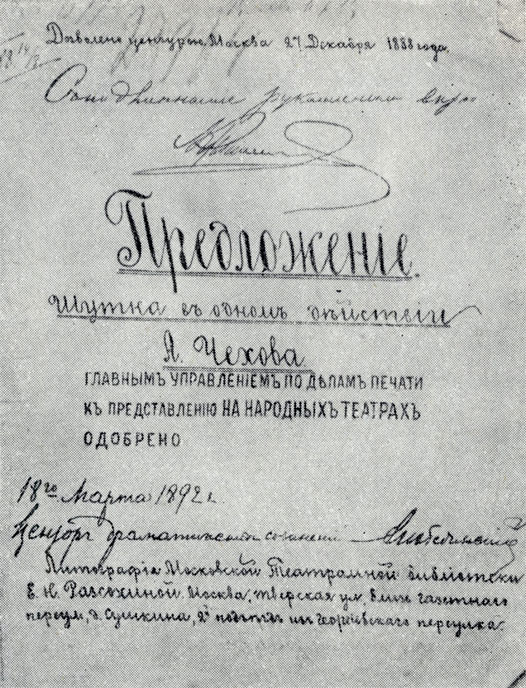 Дозволено цензурою, Москва 27 Декабря 1888 года.
рукописи
Предложеніе.
Шутка въ одномъ дѣйствіи
А. Чехова.
ГЛАВНЫМЪ УПРАВЛЕНІЕМЪ ПО ДѢЛАМЪ ПЕЧАТИ
КЪ ПРЕДСТАВЛЕНІЮ НА НАРОДНЫХЪ ТЕАТРАХЪ
ОДОБРЕНО
18го Марта 1892 г.
Цензоръ драматическихъ сочиненій
Литографія Московской Театральной библіотеки
Е. Н. Разсохиной. Москва, Тверская ул. близъ газетнаго
переул., д. Сушкина, 2й подъѣздъ изъ Георгіевскаго переулка.